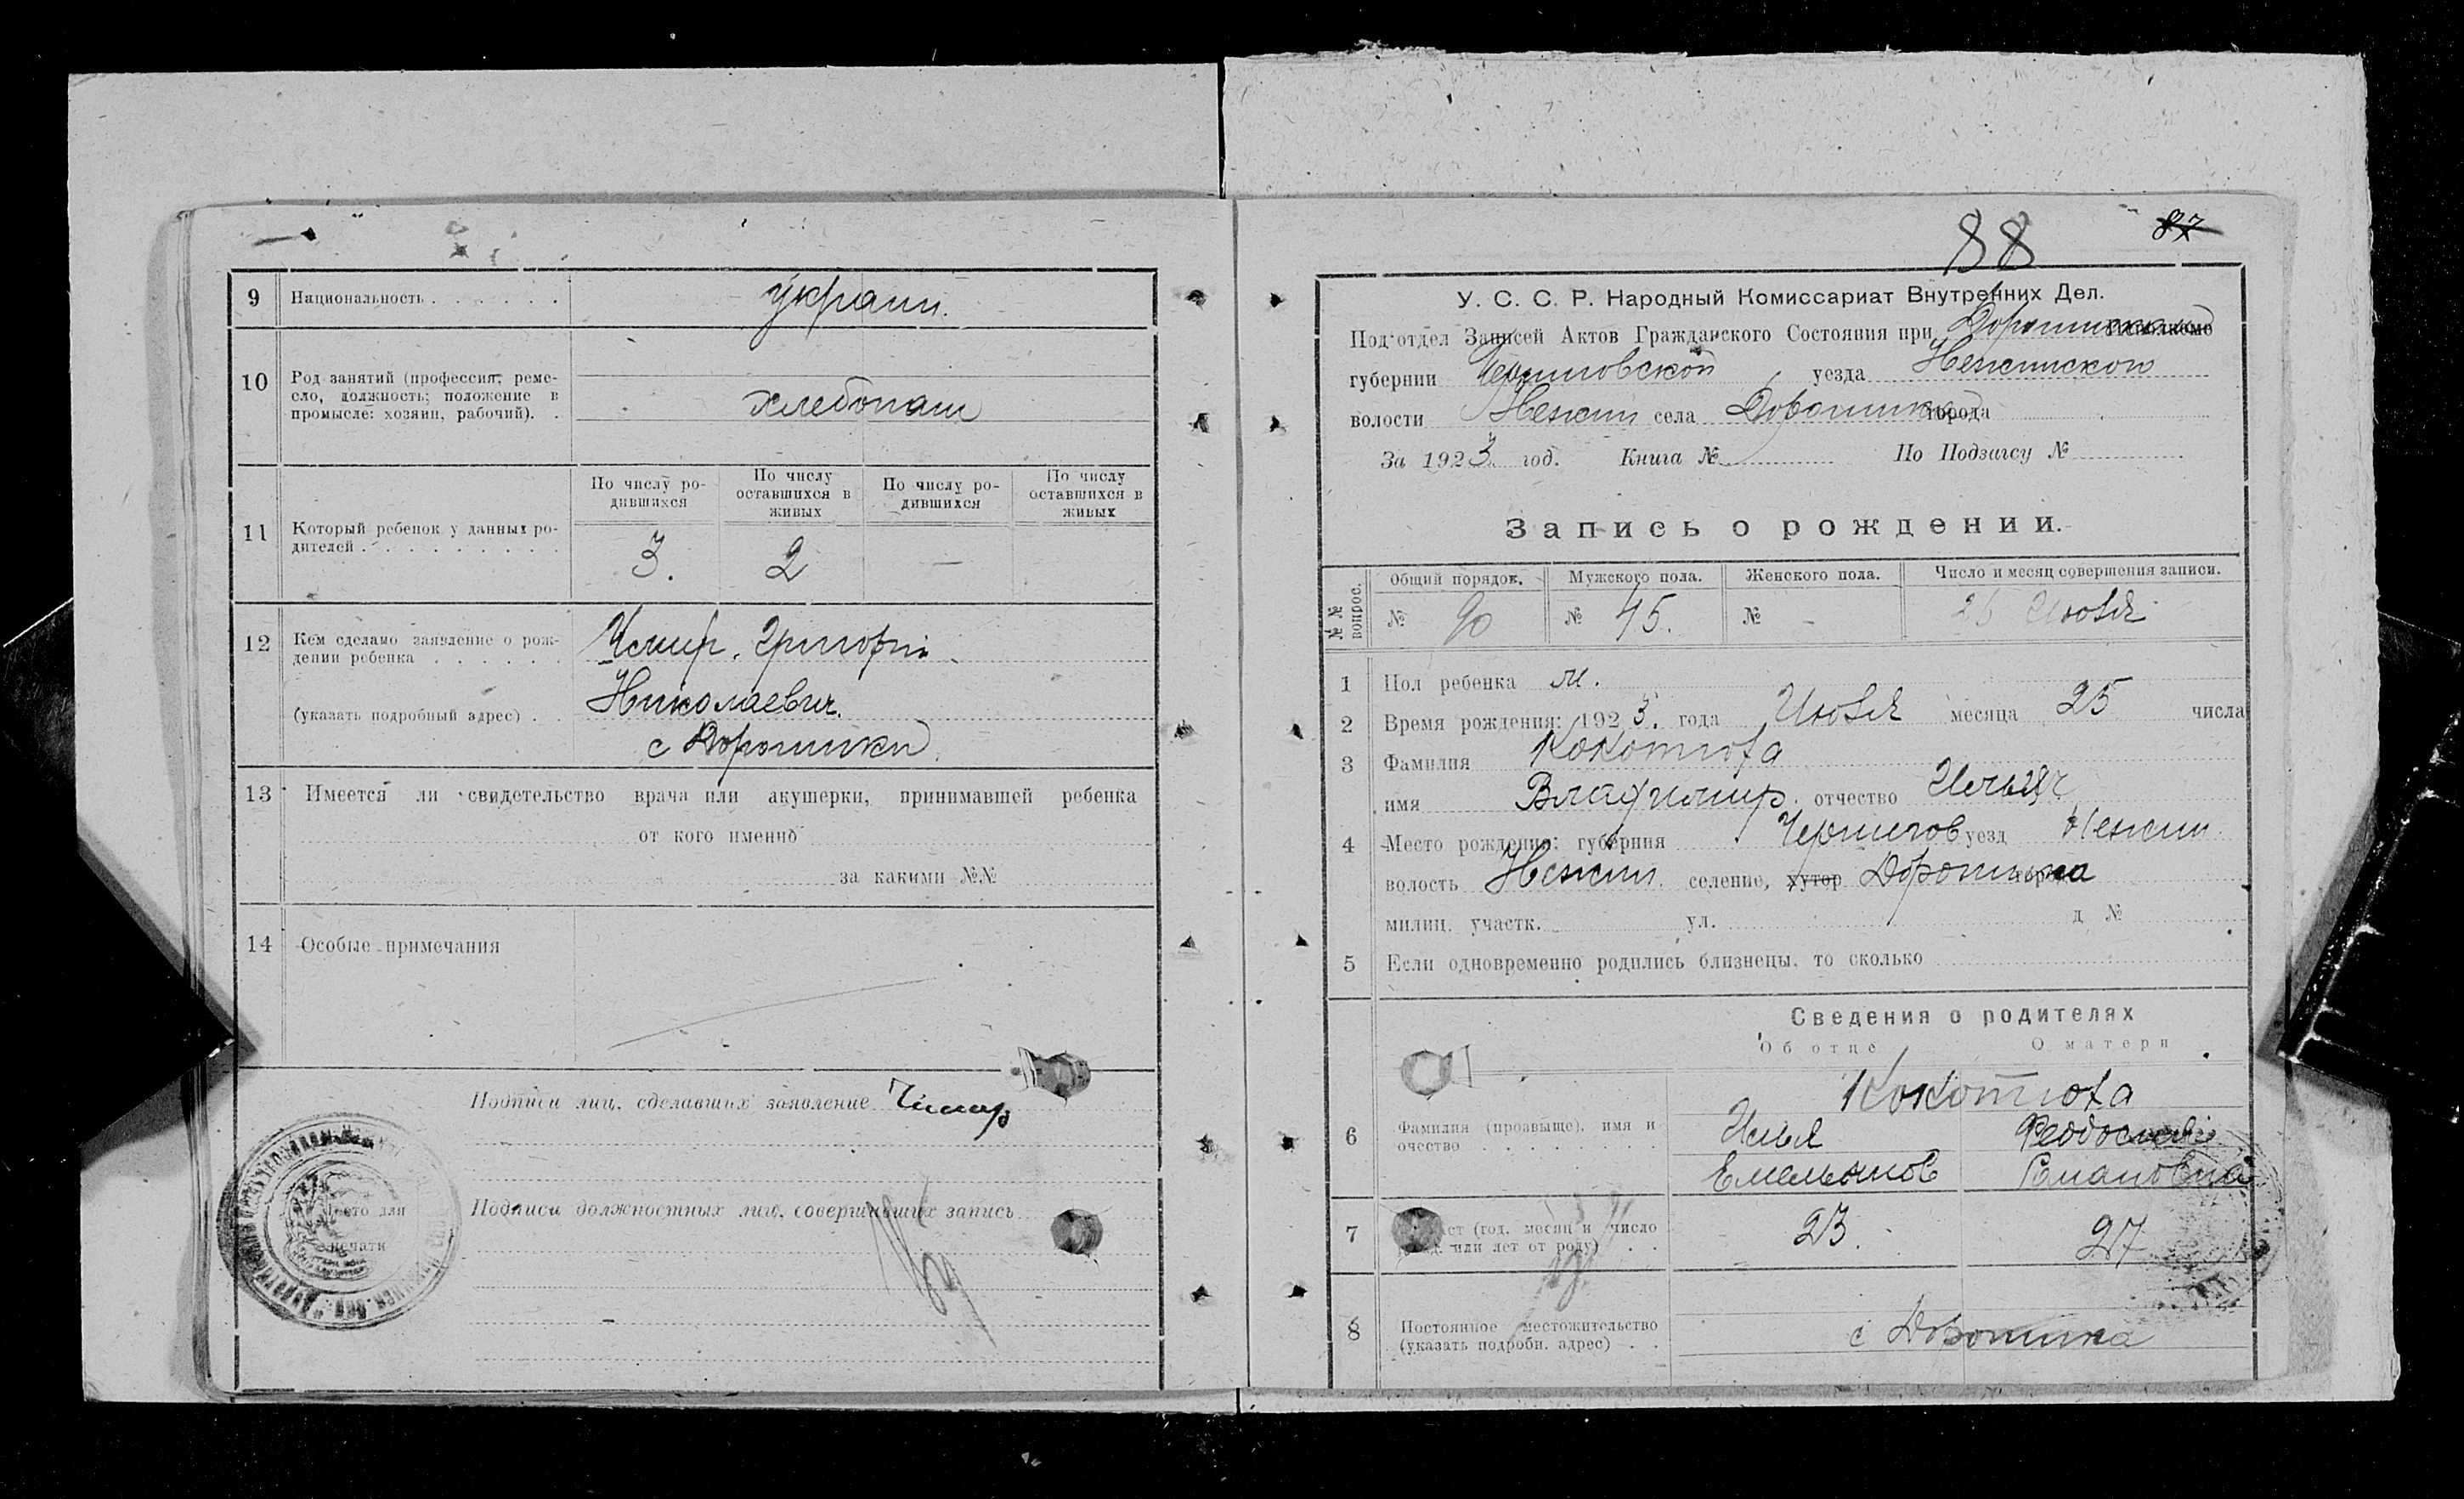 9 Национальность . . . . . . украин.
10 Род занятий (профессия; реме-
сло, должность; положение в
промысле: хозяин, рабочий). .
хлебопаш
11 Который ребенок у данных ро-
дителей . . . . . . . . . .
По числу ро-
дившихся
По числу
оставшихся в
живых
По числу ро-
дившихся
По числу
оставшихся в
живых
3. 2 —
12 Кем сделано заявление о рож-
дении ребенка . . . . . .
(указать подробный адрес) . .
Григорий
Николаевич.
13 Имеется ли свидетельство врача или акушерки, принимавшей ребенка
от кого именно
за какими №№
14 Особые примечания
Подписи лиц, сделавших заявление
Подписи должностных лиц, совершивших запись
Место для
печати
88 87
У. С. С. Р. Народный Комиссариат Внутренних Дел.
Под'отдел Записей Актов Гражданского Состояния при
губернии Черниговской уезда Нежинского
волости Нежин села города
За 1923 год. Книга № По Подзагсу №
Запись о рождении.
№№ вопрос.
Общий порядок. Мужского пола. Женского пола. Число и месяц совершения записи.
№ 90 № 45. № - 25 Июля
1 Пол ребенка м.
2 Время рождения: 1923. года Июля месяца 25 числа
3 Фамилия Кокотюха
имя Владимир. отчество Ильич
4 Место рождения: губерния Чернигов уезд Нежин.
волость Нежин. селение, хутор
милиц. участк. ул. д №
5 Если одновременно родились близнецы, то сколько
Сведения о родителях
Об отце О матери
6 Фамилия (прозвыще), имя и
очество . . . . . . . .
Кокотюха
Илья Феодосия
Емельянов Романовна
7 (год, месяц и число
или лет от роду) . .
23. 27
8 Постоянное местожительство
(указать подробн. адрес) . .